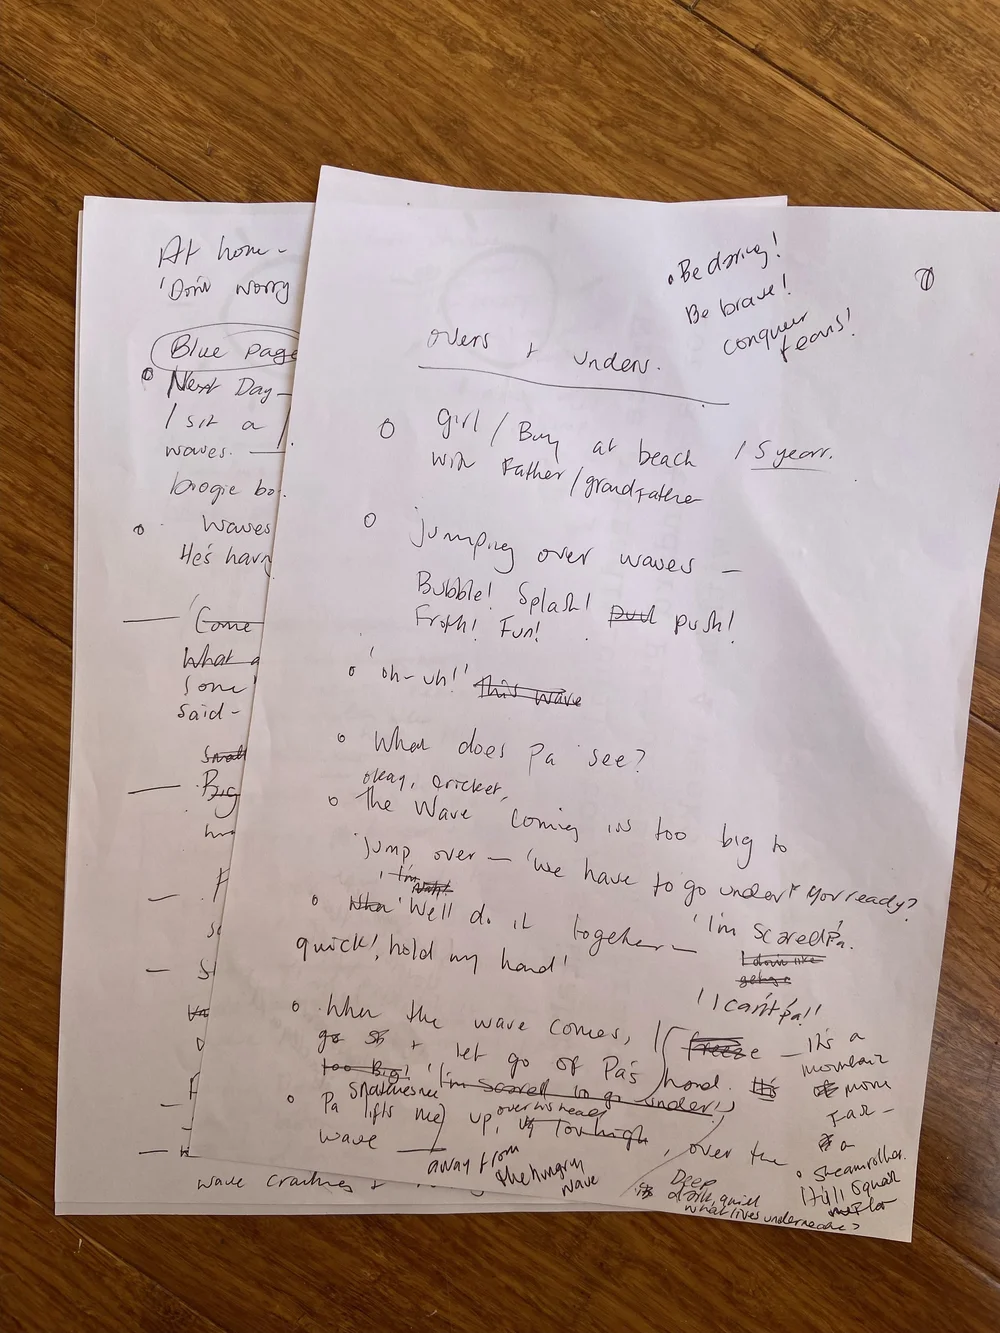 At home -
'Don't worry
Blue Page
Next Day -
I sit a
waves.
boogie bo
Waves
He's hav
'Come
What a
some
said -
Small
Big
wave crashes +
• Be daring!
Be brave!
conquer
fears!
overs + unders.
girl / Boy at beach / 5 years.
with Father / grandfather
jumping over waves -
Bubble! Splash! pull push!
Froth! Fun!
'oh-uh!' This wave
What does Pa see?
okay, cricket,
The Wave coming in is too big to
jump over - 'we have to go under! You ready?
'I'm
When 'We'll do it together - 'I'm scared Pa.
I don't like
quick! hold my hand'
'I can't Pa!'
When the wave comes, I freeze - It's a
go st + let go of Pa's hand. It's
mountain
too Big! 'I'm scared to go under!'
of more
Far -
Snatches me
over his head
Pa lifts me up, too high, over the
a
wave
away from
the hungry
wave
steamroller.
It'll squash
me flat
Deep
dark, quiet
what lives underneath?